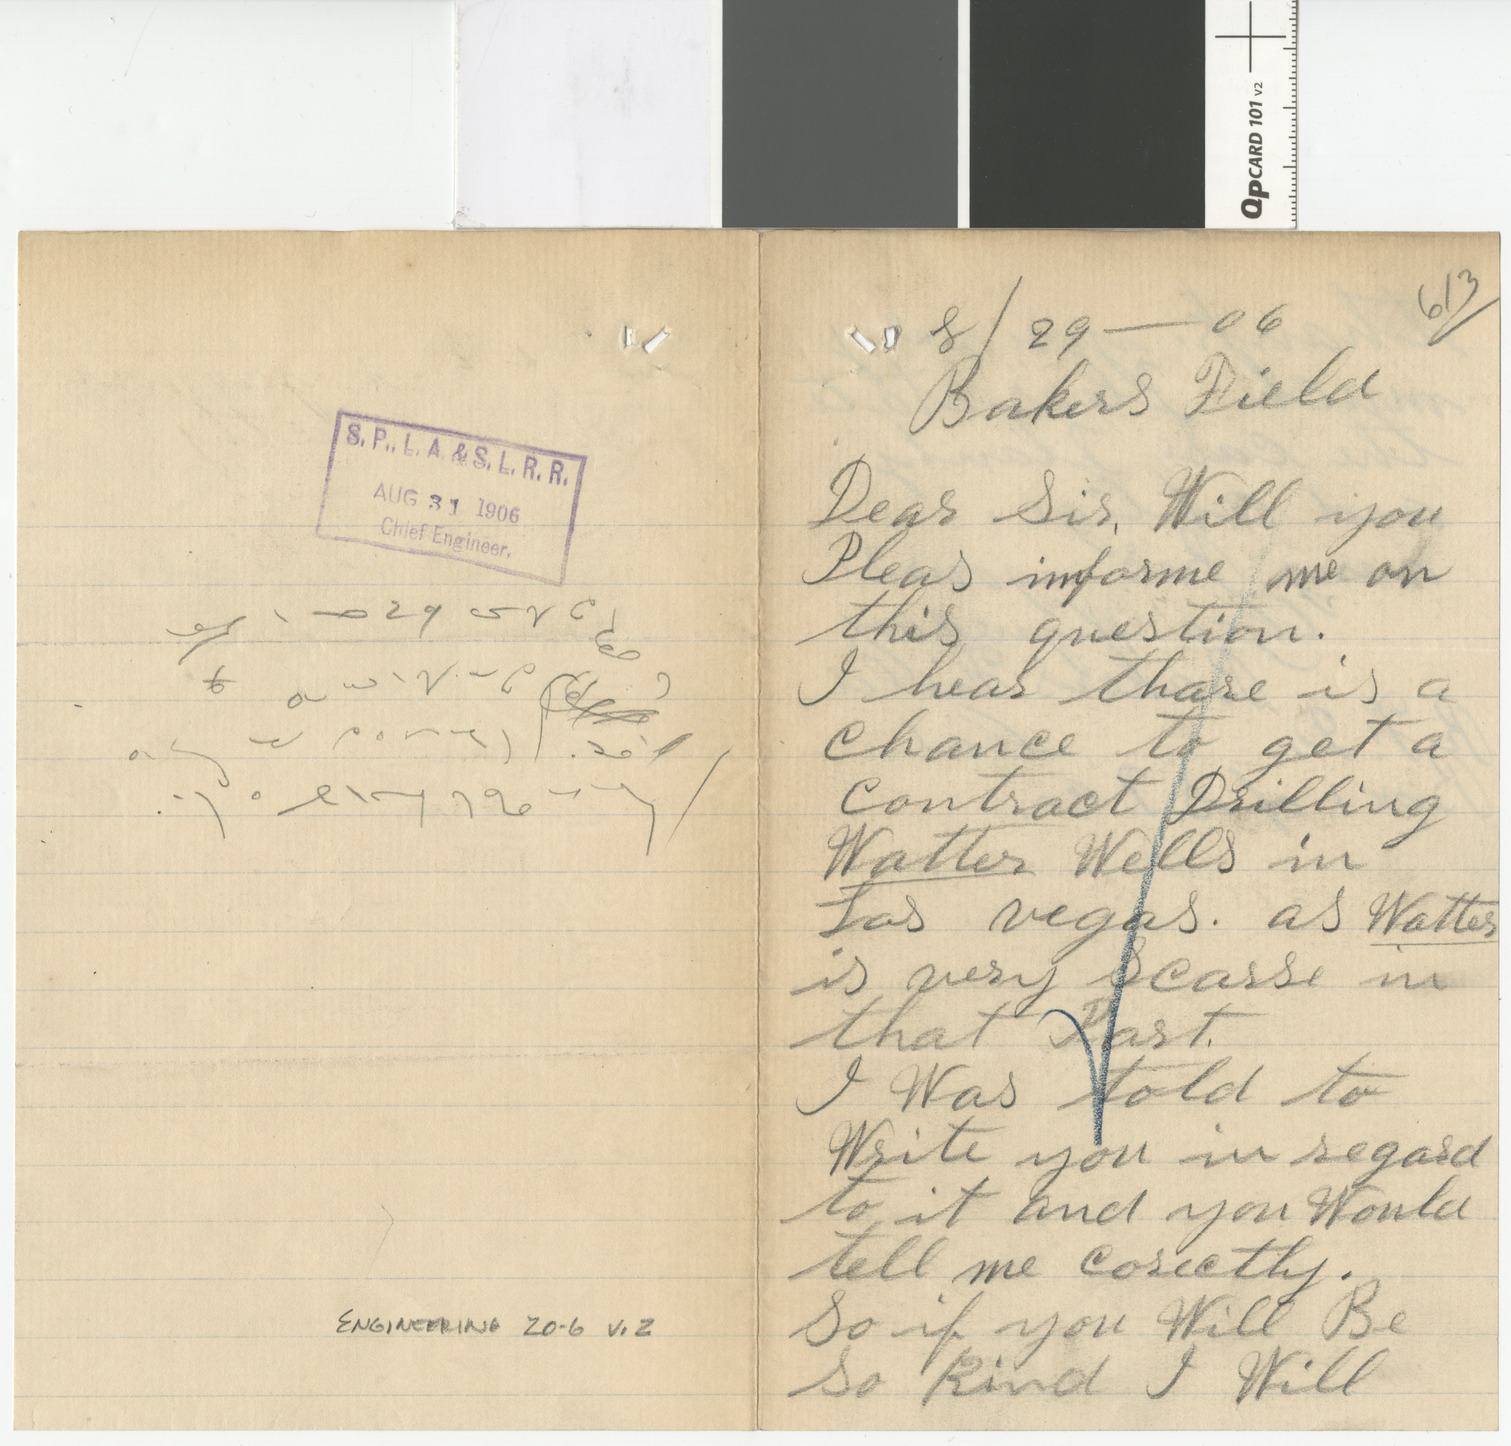 QpCARD 101 v2
S. P., L. A. & S. L. R. R.
AUG 31 1906
Chief Engineer.
ENGINEERING 20-6 V.2
613
8/29—06
Bakers Field
Dear Sir, Will you
Pleas informe me on
this question.
I hear thare is a
chance to get a
contract Drilling
Watter Wells in
Las vegas. as Watter
is very Scarse in
that Part.
I Was told to
Write you in regard
to it and you Would
tell me corectly.
So if you Will Be
So Kind I Will